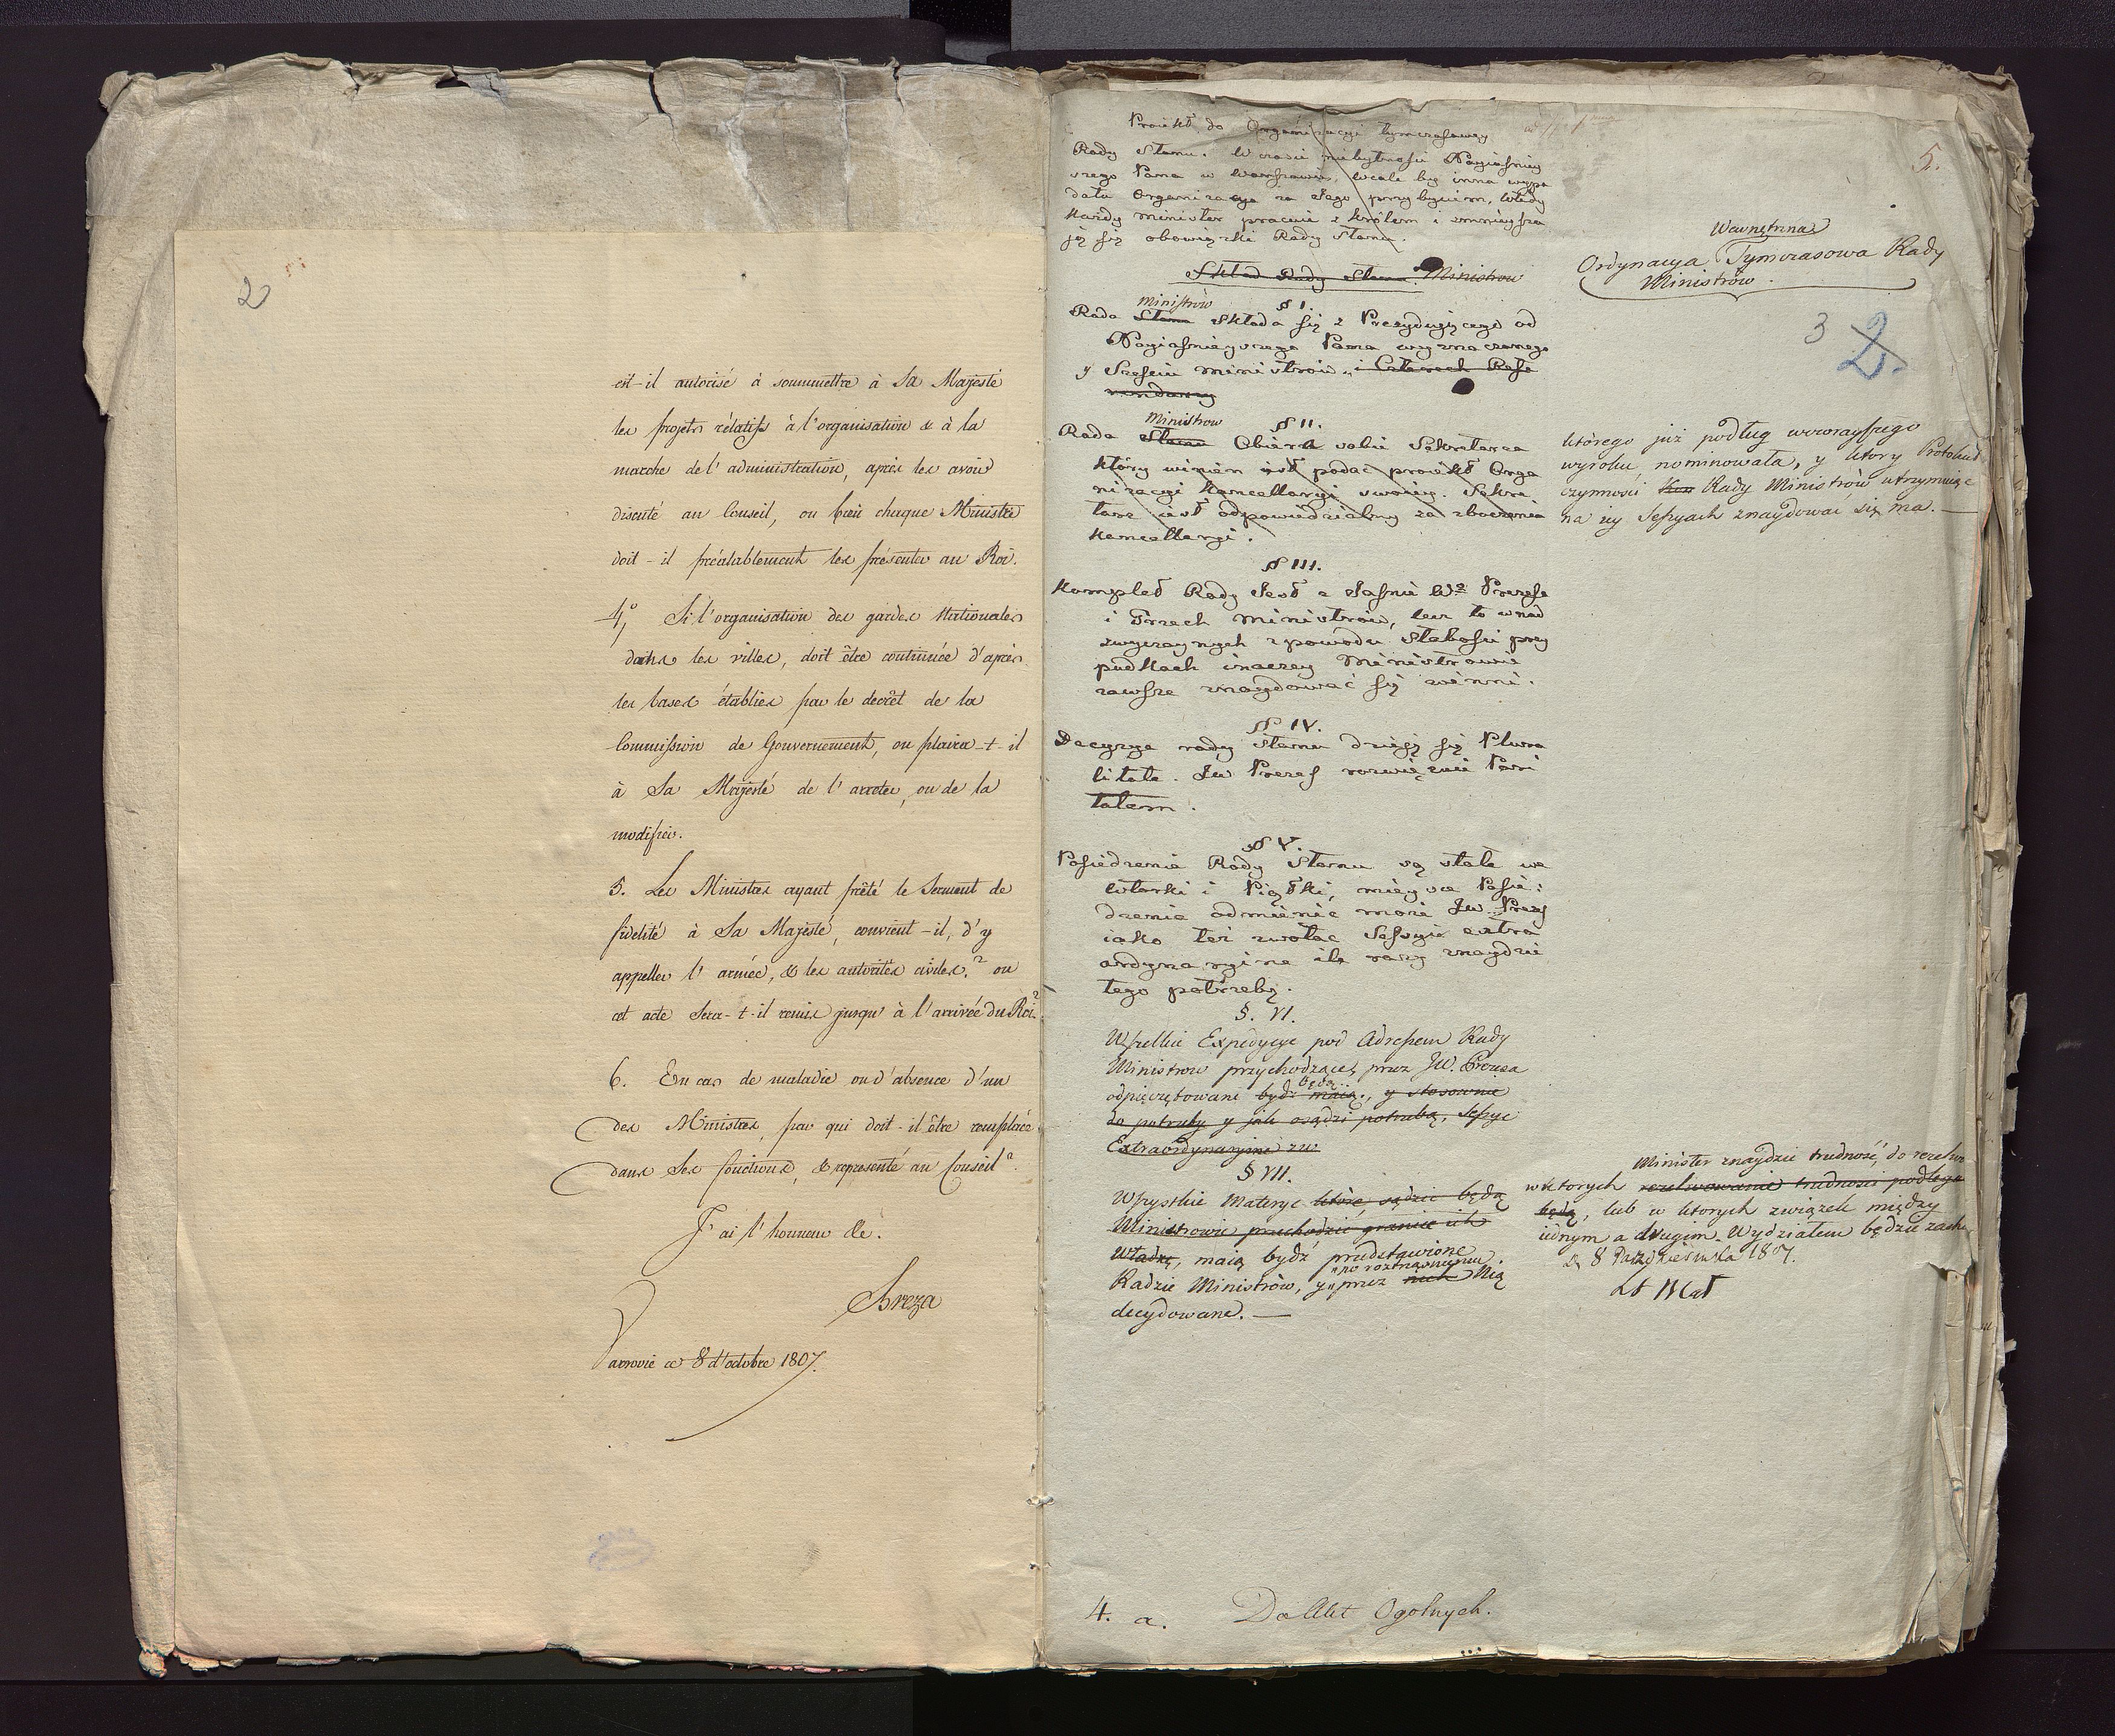 2
est-il autorisé à soummettre à Sa Majesté
les projets rélatifs à l'organisation & à la
marche de l'administration, après les avoir
discuté au Conseil, ou bien chaque Ministre
doit-il préalablement les présenter au Roi.
4° Si l'organisation des gardes Nationales
dans les villes, doit être continuée d'après
les bases établies par le decrêt de la
Commission de Gouvernement, ou plaira-t-il
à Sa Majesté de l'arrêter, ou de la
modifier.
5. Les Ministres ayant prêté le Serment de
fidelité à Sa Majesté, convient-il, d'y
appeller l'armée, & les autorités civiles? ou
cet acte Sera-t-il remis jusqu'à l'arrivée du Roi?
6. En cas de maladie ou d'absence d'un
des Ministres, par qui doit-il être remplacé
dans Ses fonctions, & representé au Conseil?
J'ai l'honneur de.
Breza
Varsovie ce 8 d'octobre 1807.
Proiekt do Organizacyi tymczasowey
Rady Stanu. W czasie niebytnosci Nayiasniey
szego Pana w Warszawie, wcale by inna wypa
dała Organizacya za Jego przybyciem, kiedy
Kazdy minister pracuie z Królem i zmnieysza
ją się obowiązki Rady Stanu.
Skład Rady Stanu Ministrow
§ I.
Ministrów
Rada Stanu składa się z Prezydującego od
Nayiasnieyszego Pana wyznaczonego
y Szesciu ministrów, i Czterech Refe
rendarzy
§ II.
Ministrow
Rada Stanu Obiera sobie Sekretarza
który winien iest podać proiekt Orga
nizacyi Kancellaryi swoiey. Sekre
tarz iest odpowiedzialny za zboczenia
Kancellaryi.
§ III.
Komplet Rady Jest z Jasnie Wo Prezesa
i Trzech Ministrów, lecz to w nad
zwyczaynych z powodu słabosci przy
padkach inaczey Ministrowie
zawsze znaydować się winni.
§ IV.
Decyzye rady Stanu dzieją się Plura
litate. Jw Prezes rozwiązuie Pari
tatem.
§ V.
Posiedzenia Rady Stanu są stałe we
wtorki i Piątki, mieysce Posie
dzenia odmienić może Jw. Prezes
iako też zwołać Sessyie extra
ordynaryine ile razy znaydzie
tego potrzebę.
§. VI.
Wszelkie Expedycye pod Adressem Rady
Ministrow przychodzące, przez JW. Prezesa
będą
odpieczętowane bydź maią, y stosownie
do potrzeby y jak osądzi potrzebę, Sessye
Extraordynaryine zw
§ VII.
Wszystkie Materye które, sądzić będą
Ministrowie przechodzić granice ich
Władzę, maią bydź przedstawione
po roztrząśnieniu
Radzie Ministrów, y przez nich Nią
decydowane.
4. a. Do Akt Ogolnych.
5.
Wewnętrzna
Ordynacya Tymczasowa Rady
Ministrów.
3 2.
którego już podług wczorayszego
wyroku nominowała, y ktory Protokuł
czynności Rady Ministrów utrzymuiąc
na iey Sessyach znaydować się ma.
Minister znaydzie trudność, do rezolwo
w ktorych rezolwowanie trudności podlega
będą, lub w ktorych związek między
iednym a drugim Wydziałem będzie zach
D. 8 Października 1807.